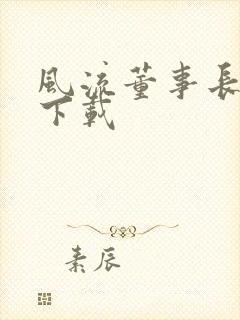 風流董事長
下載
素辰